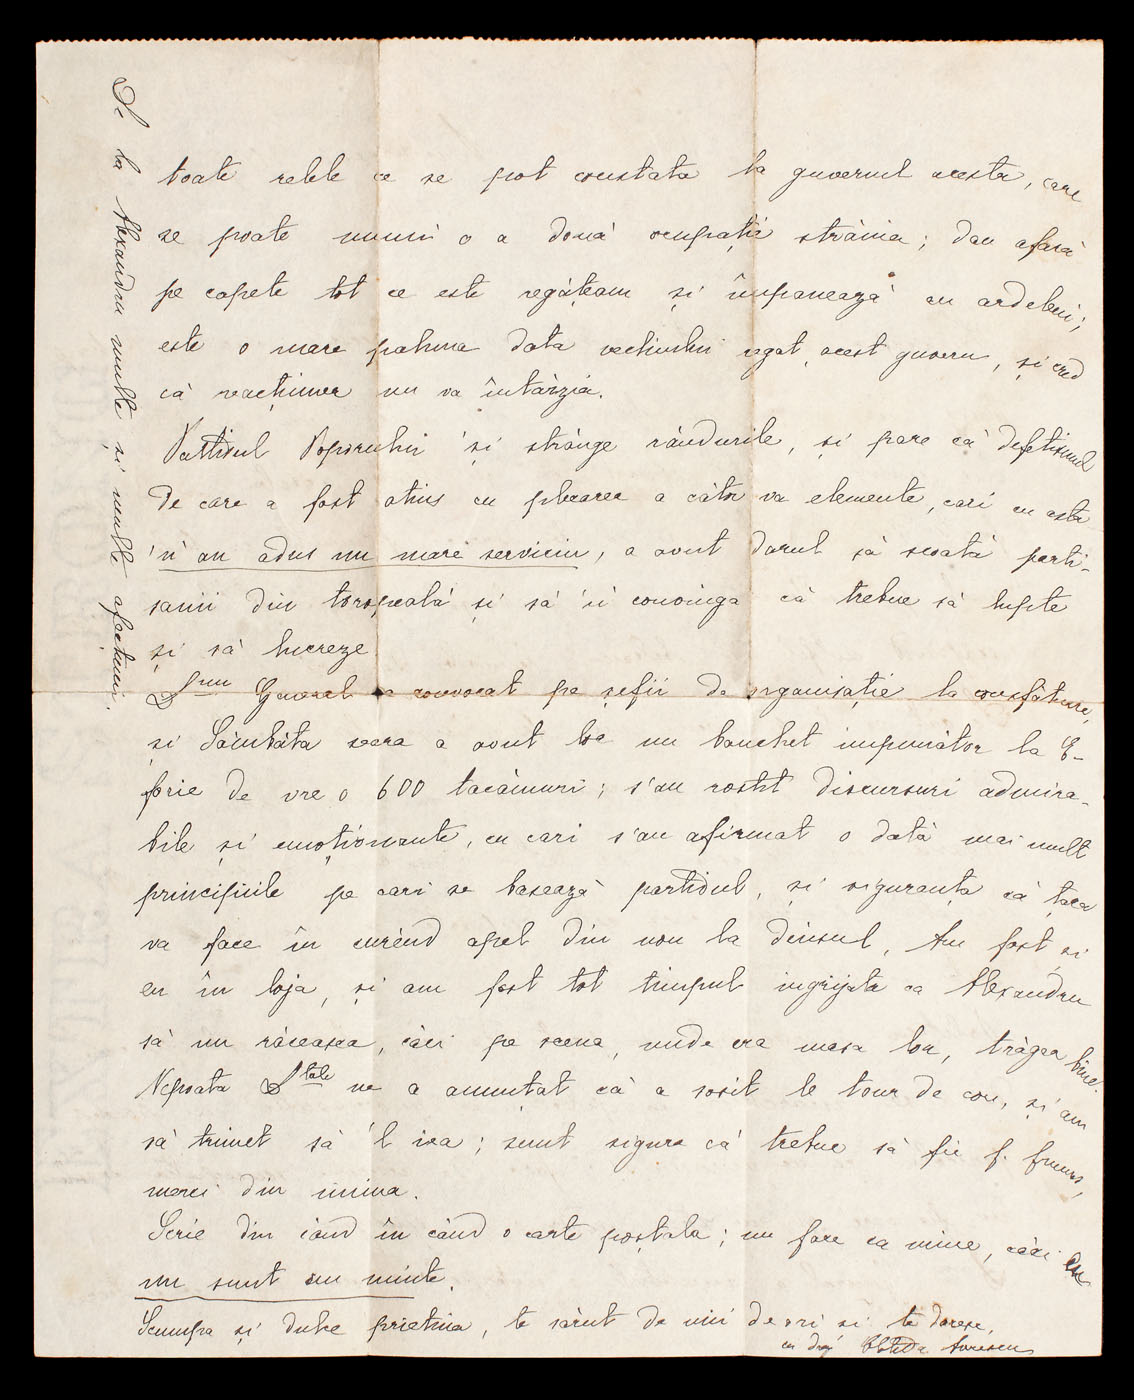 toate relele ce se pot constata la guvernul acesta, care
se poate numi o a doua ocupație străina; dau afară
pe capete tot ce este regățean și împanează cu ardeleni;
este o mare palma data vechiului regat, acest guvern, și cred
că reacțiunea nu va întârzia.
Partidul Poporului 'și strânge rândurile, și pare că defetismul
de care a fost atins cu plecarea a câtor va elemente, cari cu asta
'n' au adus un mare serviciu, a avut darul să scoată parti-
sanii din torspeală și să 'ii convinga că trebue să lupte
și să lucreze
Dnu General a convocat pe șefii de organisație la consfătuire,
și Sâmbăta seara a avut loc un banchet impunător la E-
forie de vre o 600 tacâmuri; s'au rostit discursuri admira-
bile și emoționante, cu cari s'au afirmat o dată mai mult
principiile pe cari se basează partidul, și siguranța că țara
va face în curênd apel din nou la dênsul. Am fost și
eu în loja, și am fost tot timpul ingrijata ca Alexandru
să nu răceasca, căci pe scena, unde era masa lor, trăgea bine.
Nepoata Dtale ne a anunțat că a sosit le tour de cou, și am
să trimet să 'l iea; sunt sigura că trebue să fie f. frumos,
merci din inima.
Scrie din când în când o carte poștala; nu face ca mine, căci eu
nu sunt cu minte.
Scumpa și dulce prietina, te sărut de mii de ori și te doresc,
cu drag
Și la Alexandru multe și multe afecțiuni.